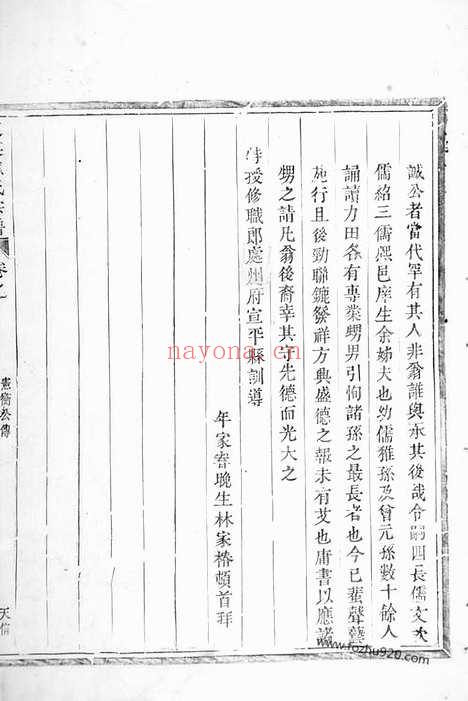 誠公者當代罕有其人非翁誰與永其後哉令嗣四長儒文次
儒紹三儒熙邑庠生余姊夫也幼儒雅孫及曾元孫數十餘人
誦讀力田各有專業甥男引恂諸孫之最長者也今已蜚聲黌
施行且後勁聯鑣發祥方興盛德之報未有艾也庸書以應諸
甥之請凡翁後裔幸其守先德而光大之
特授修職郎處州府宣平縣訓導
年家眷晚生林家椿頓首拜
氏宗譜
卷之
憲衡公傳
天倫
nayona.cn
www.fozhu920.com